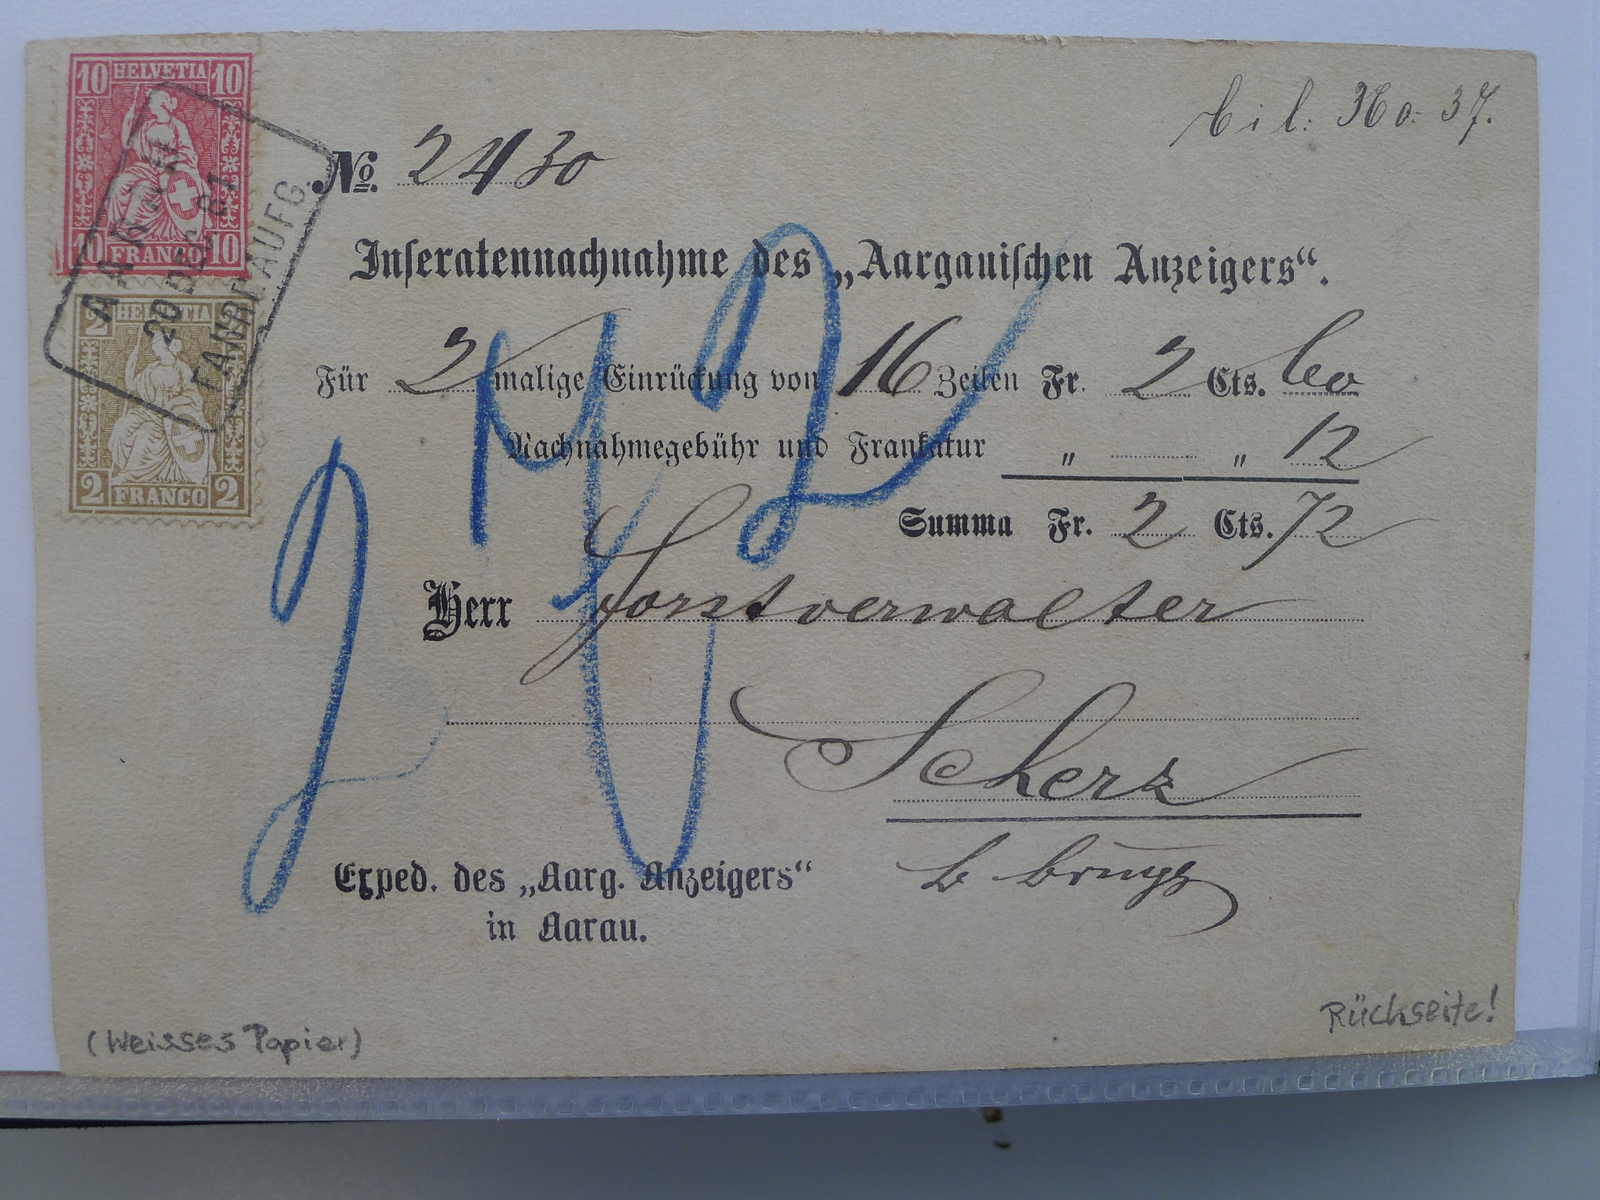 bil: 360: 37.
10 HELVETIA 10
10 FRANCO 10
AARAU
20 DEC 81
FAHRP. AUFG.
2 HELVETIA
2 FRANCO 2
No. 2430
Inseratennachnahme des „Aargauischen Anzeigers“.
Für 2 malige Einrückung von 16 Zeilen Fr. 2 Cts. 60
Nachnahmegebühr und Frankatur „ „ 12
Summa Fr. 2 Cts. 72
Herr Forstverwalter
Scherz
b Brugg
Exped. des „Aarg. Anzeigers“
in Aarau.
2 72
(Weisses Papier)
Rückseite!